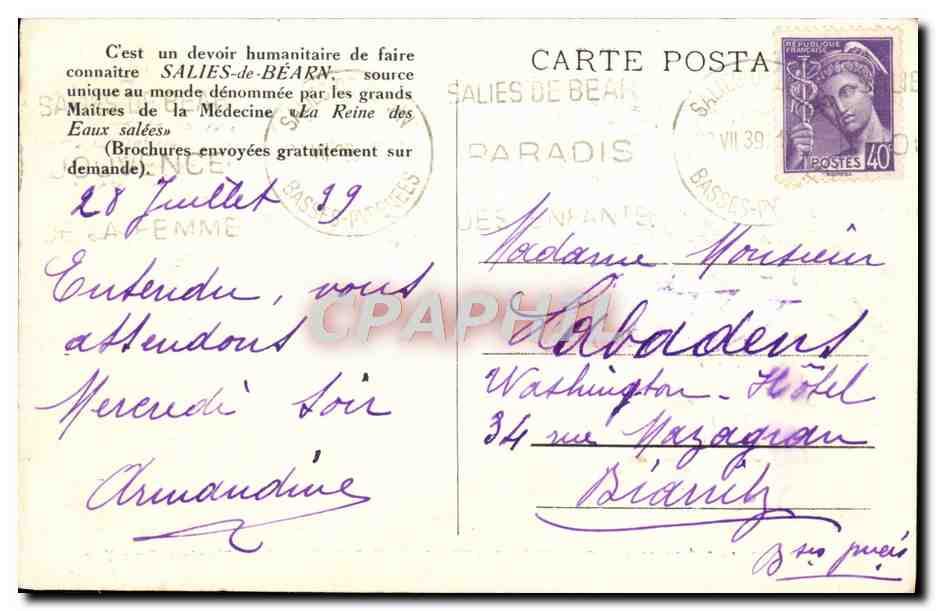 C'est un devoir humanitaire de faire
connaître SALIES-de-BÉARN, source
unique au monde dénommée par les grands
Maîtres de la Médecine «La Reine des
Eaux salées»
(Brochures envoyées gratuitement sur
demande).
28 Juillet 39
Entendu, vous
attendons
Mercredi soir
Armandine
CARTE POSTA
SALIES DE BEARN
PARADIS
DES ENFANTS
SALIES DE BEARN
JOUVENCE
DE LA FEMME
BASSES-PYRENEES
VII 39
BASSES-PY
RÉPUBLIQUE
FRANÇAISE
POSTES 40c
Madame Monsieur
Labadens
Washington-Hôtel
34 rue Mazagran
Biarritz
Bses
CPAPHIL